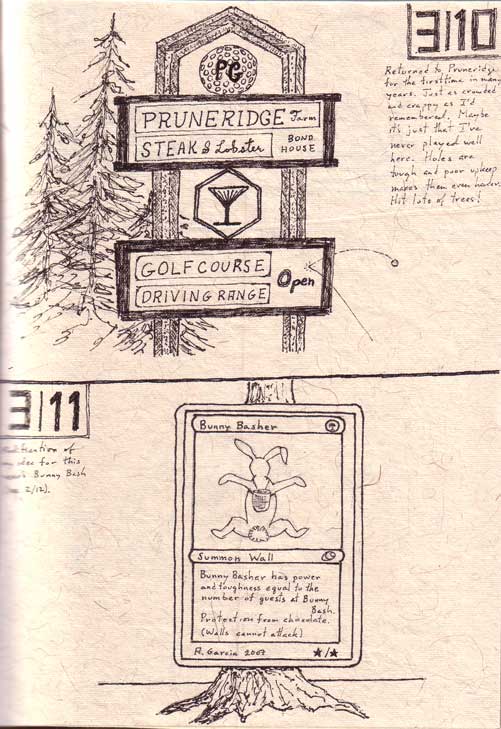 3|10
Returned to Pruneridge
for the first time in many
years. Just as crowded
and crappy as I'd
remembered. Maybe
it's just that I've
never played well
here. Holes are
tough and poor upkeep
makes them even harder.
Hit lots of trees!
PG
PRUNERIDGE Farm
STEAK & Lobster BOND HOUSE
GOLF COURSE
DRIVING RANGE
Open
3|11
of
idea for this
Bunny Bash
2/12).
Bunny Basher
Summon Wall
Bunny Basher has power
and toughness equal to the
number of guests at Bunny
Bash.
Protection from chocolate.
(Walls cannot attack)
R. Garcia 2007 ★/★